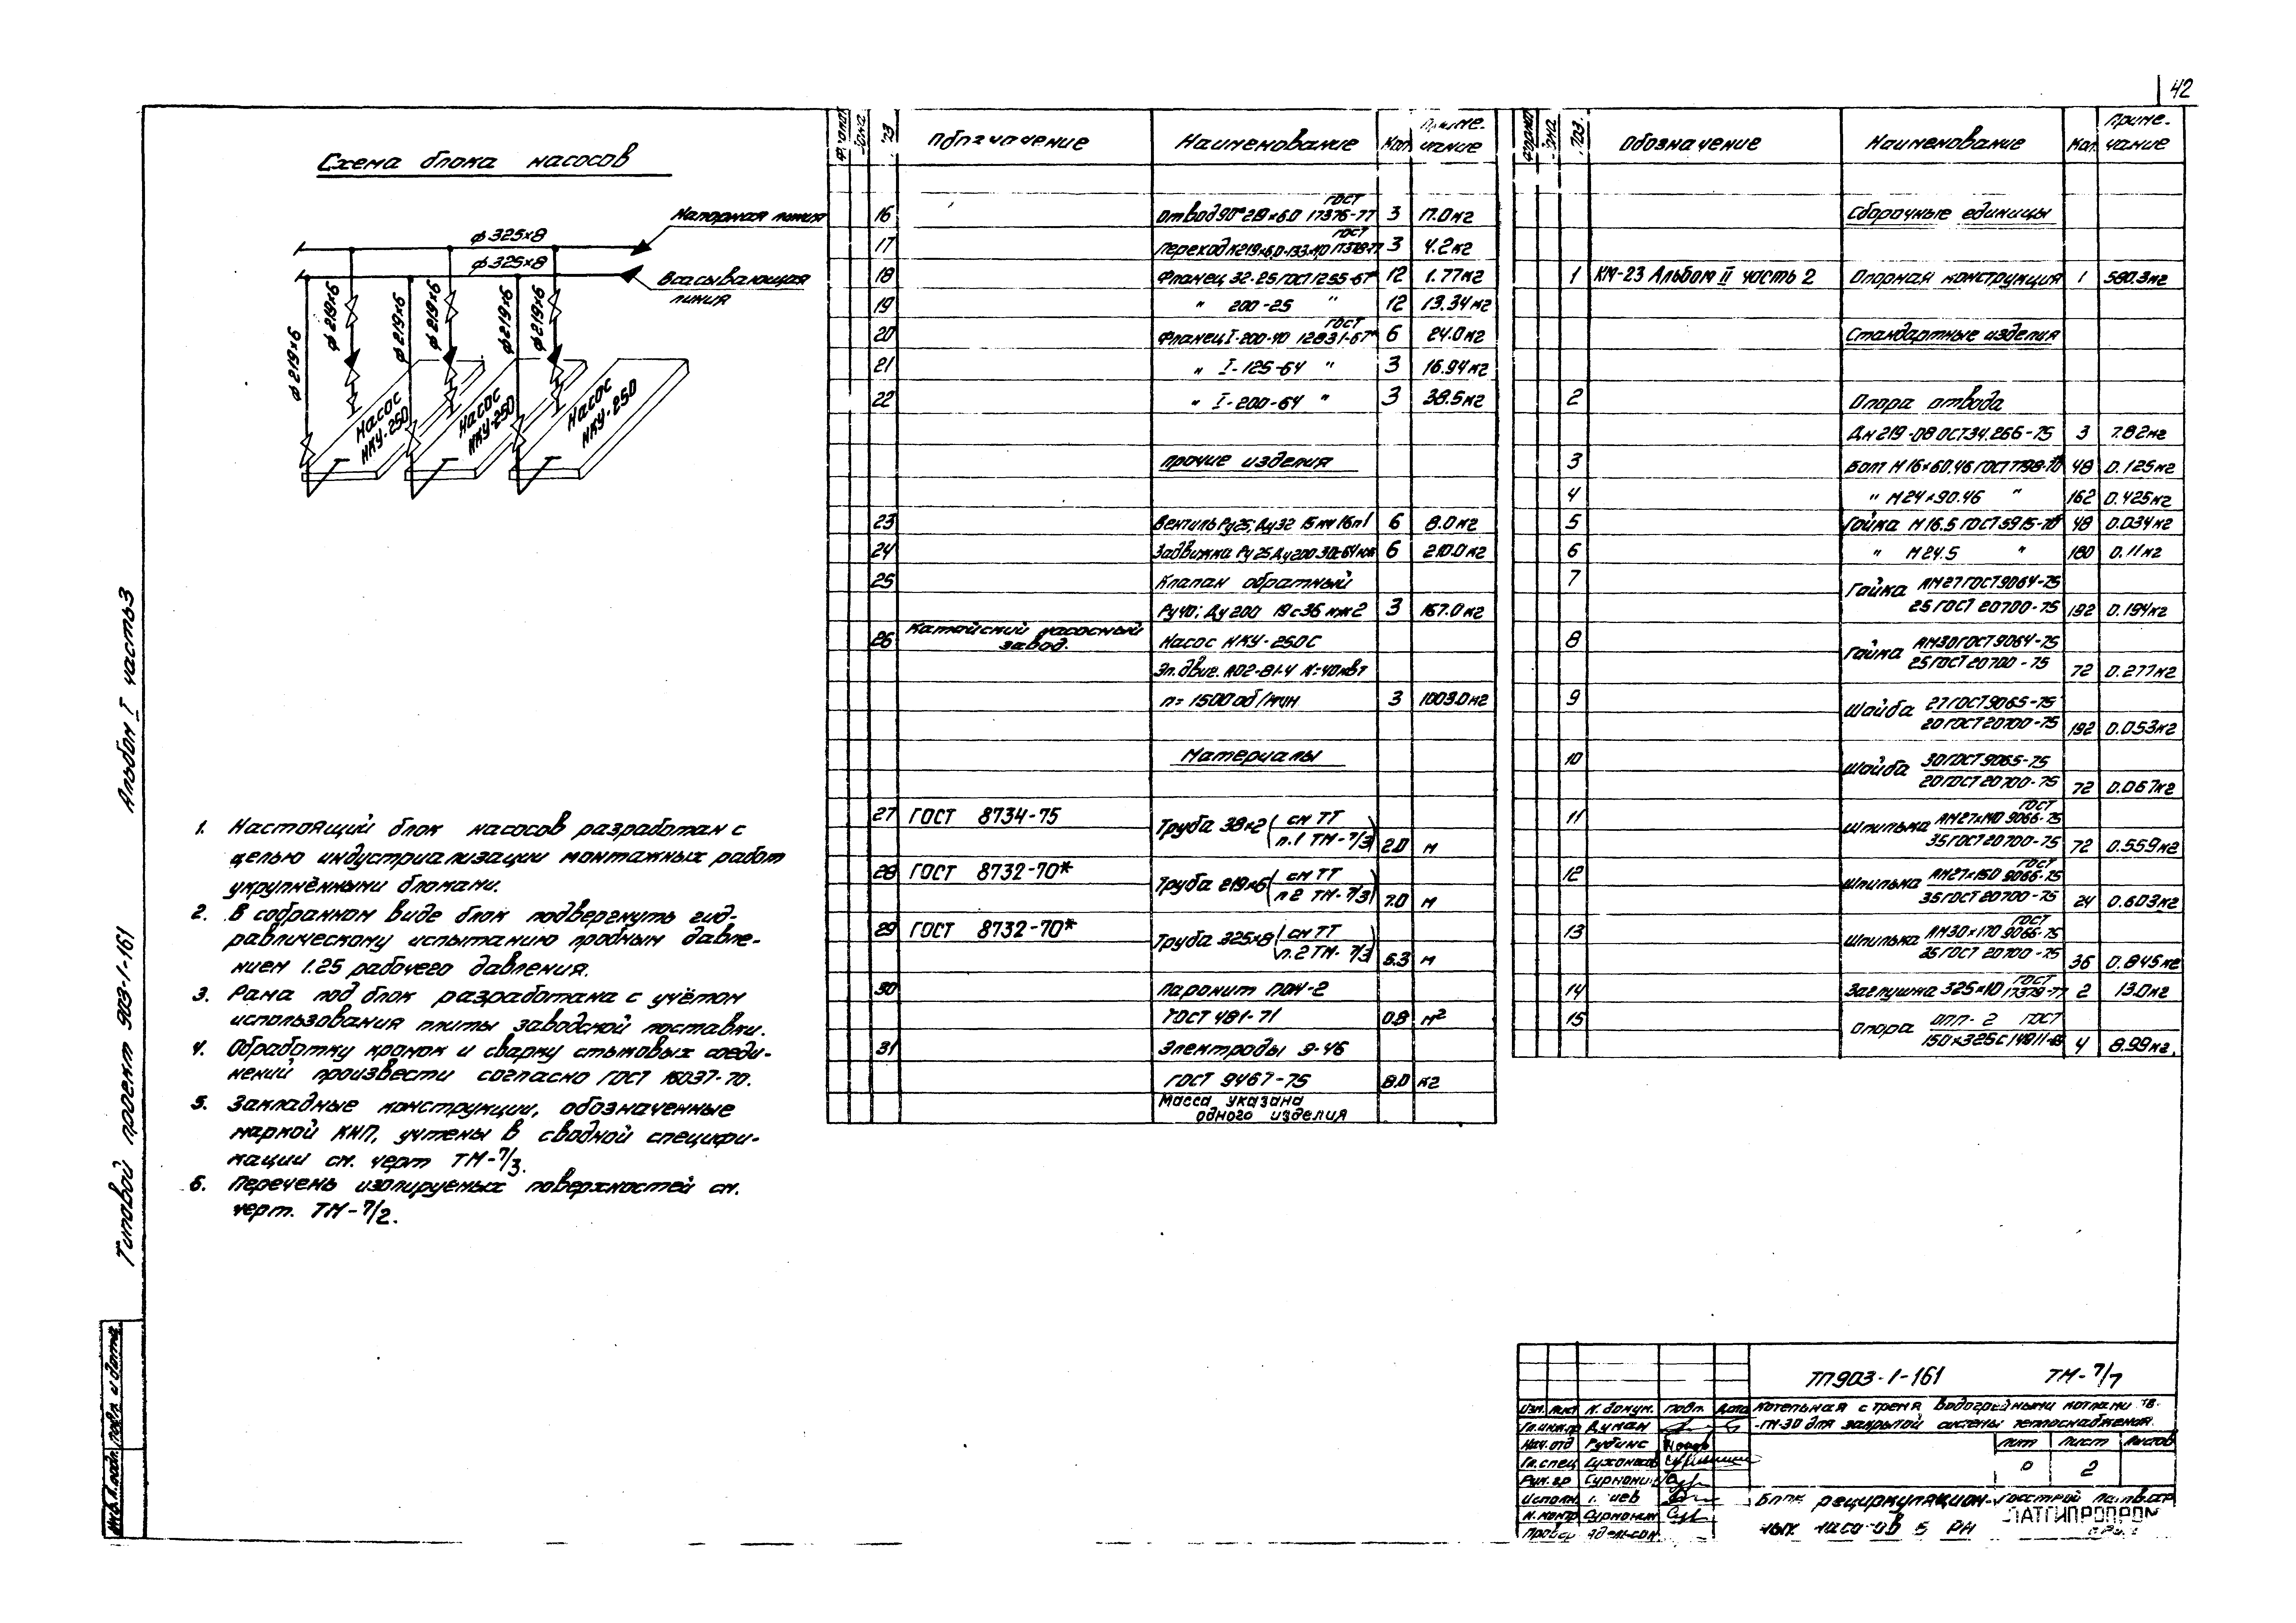 42
Схема блока насосов
Напорная линия
ф325×8
ф325×8
Всасывающая
линия
ф219×6
ф219×6
ф219×6
ф219×6
ф219×6
ф219×6
Насос
НКУ-250
Насос
НКУ-250
Насос
НКУ-250
1. Настоящий блок насосов разработан с
целью индустриализации монтажных работ
укрупнёнными блоками.
2. В собранном виде блок подвергнуть гид-
равлическому испытанию пробным давле-
нием 1.25 рабочего давления.
3. Рама под блок разработана с учётом
использования плиты заводской поставки.
4. Обработку кромок и сварку стыковых соеди-
нений произвести согласно ГОСТ 16037-70.
5. Закладные конструкции, обозначенные
маркой КИП, учтены в сводной специфи-
кации см. черт ТМ-7/3.
6. Перечень изолируемых поверхностей см.
черт. ТМ-7/2.
Наименование Кол. Приме-
чание
16 Отвод 90° 219×6.0 ГОСТ 17375-77 3 17.0кг
17 Переход К219×6,0-133×4,0 ГОСТ 17378-77 3 4.2кг
18 Фланец 32-25 ГОСТ 1255-67* 12 1.77кг
19 " 200-25 " 12 13.34кг
20 Фланец I-200-40 ГОСТ 12831-67* 6 24.0кг
21 " I-125-64 " 3 16.94кг
22 " I-200-64 " 3 38.5кг
Прочие изделия
23 Вентиль Ру25; Ду32 15кч16п1 6 8.0кг
24 Задвижка Ру25 Ду200 30с64нж 6 210.0кг
25 Клапан обратный
Ру40; Ду200 19с36нж2 3 167.0кг
26 Катайский насосный
завод. Насос НКУ-250С
Эл.двиг. АО2-81-4 N=40квт
n=1500об/мин 3 1003.0кг
Материалы
27 ГОСТ 8734-75 Труба 38×2 (см ТТ
п.1 ТМ-7/3) 2.0 м
28 ГОСТ 8732-70* Труба 219×6 (см ТТ
п2 ТМ-7/3) 7.0 м
29 ГОСТ 8732-70* Труба 325×8 (см ТТ
п.2 ТМ-7/3) 6.3 м
30 Паронит ПОН-2
ГОСТ 481-71 0.8 м²
31 Электроды Э-46
ГОСТ 9467-75 8.0 кг
Масса указана
одного изделия
Формат Зона Поз. Обозначение Наименование Кол. Приме-
чание
Сборочные единицы
1 КМ-23 Альбом II часть 2 Опорная конструкция 1 580.3кг
Стандартные изделия
2 Опора отвода
Дн219-08 ОСТ34.266-75 3 7.82кг
3 Болт М16×60.46 ГОСТ 7798-70 48 0.125кг
4 " М24×90.46 " 162 0.425кг
5 Гайка М16.5 ГОСТ 5915-70 48 0.034кг
6 " М24.5 " 180 0.11кг
7 Гайка АМ27 ГОСТ 9064-75
25 ГОСТ 20700-75 192 0.194кг
8 Гайка АМ30 ГОСТ 9064-75
25 ГОСТ 20700-75 72 0.277кг
9 Шайба 27 ГОСТ 9065-75
20 ГОСТ 20700-75 192 0.053кг
10 Шайба 30 ГОСТ 9065-75
20 ГОСТ 20700-75 72 0.067кг
11 Шпилька АМ27×140 ГОСТ 9066-75
35 ГОСТ 20700-75 72 0.559кг
12 Шпилька АМ27×150 ГОСТ 9066-75
35 ГОСТ 20700-75 24 0.603кг
13 Шпилька АМ30×170 ГОСТ 9066-75
35 ГОСТ 20700-75 36 0.845кг
14 Заглушка 325×10 ГОСТ 17379-77 2 13.0кг
15 Опора ОПП-2 ГОСТ
150×325С 14911- 4 8.99кг.
Альбом I часть 3
Типовой проект 903-1-161
Инв.№ подл. подп. и дата
ТП903-1-161 ТМ-7/7
Изм. Лист N. докум. подп. Дата
Гл.инж.пр Думан
Нач.отд Рубинс
Гл.спец
Рук.гр
Исполн.
Н.контр
Провер. Эдельсон
Котельная с тремя водогрейными котлами КВ-
-ГМ-30 для закрытой системы теплоснабжения.
Лит Лист Листов
Р 2
Блок рециркуляцион-
ных насосов БРН
Госстрой Латв.ССР
ЛАТГИПРОПРОМ
г.Рига